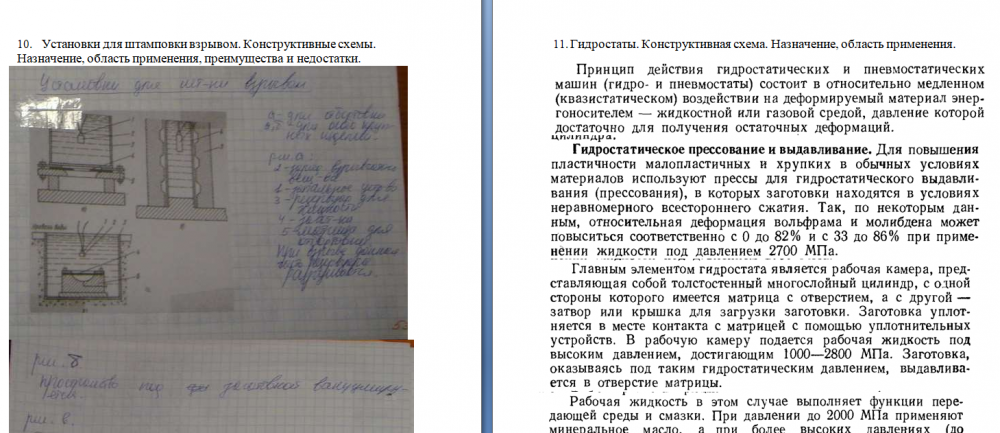 10. Установки для штамповки взрывом. Конструктивные схемы.
Назначение, область применения, преимущества и недостатки.
Установки для шт-ки взрывом
а - для отбортовки
рис. а:
4 - заг-ка
рис. б
пространство под заготовкой вакуумиру-
рис. в.
11. Гидростаты. Конструктивная схема. Назначение, область применения.
Принцип действия гидростатических и пневмостатических
машин (гидро- и пневмостаты) состоит в относительно медленном
(квазистатическом) воздействии на деформируемый материал энер-
гоносителем — жидкостной или газовой средой, давление которой
достаточно для получения остаточных деформаций.
цилиндра.
Гидростатическое прессование и выдавливание. Для повышения
пластичности малопластичных и хрупких в обычных условиях
материалов используют прессы для гидростатического выдавли-
вания (прессования), в которых заготовки находятся в условиях
неравномерного всестороннего сжатия. Так, по некоторым дан-
ным, относительная деформация вольфрама и молибдена может
повыситься соответственно с 0 до 82% и с 33 до 86% при приме-
нении жидкости под давлением 2700 МПа.
Главным элементом гидростата является рабочая камера, пред-
ставляющая собой толстостенный многослойный цилиндр, с одной
стороны которого имеется матрица с отверстием, а с другой —
затвор или крышка для загрузки заготовки. Заготовка уплот-
няется в месте контакта с матрицей с помощью уплотнительных
устройств. В рабочую камеру подается рабочая жидкость под
высоким давлением, достигающим 1000—2800 МПа. Заготовка,
оказываясь под таким гидростатическим давлением, выдавлива-
ется в отверстие матрицы.
Рабочая жидкость в этом случае выполняет функции пере-
дающей среды и смазки. При давлении до 2000 МПа применяют
минеральное масло, а при более высоких давлениях (до